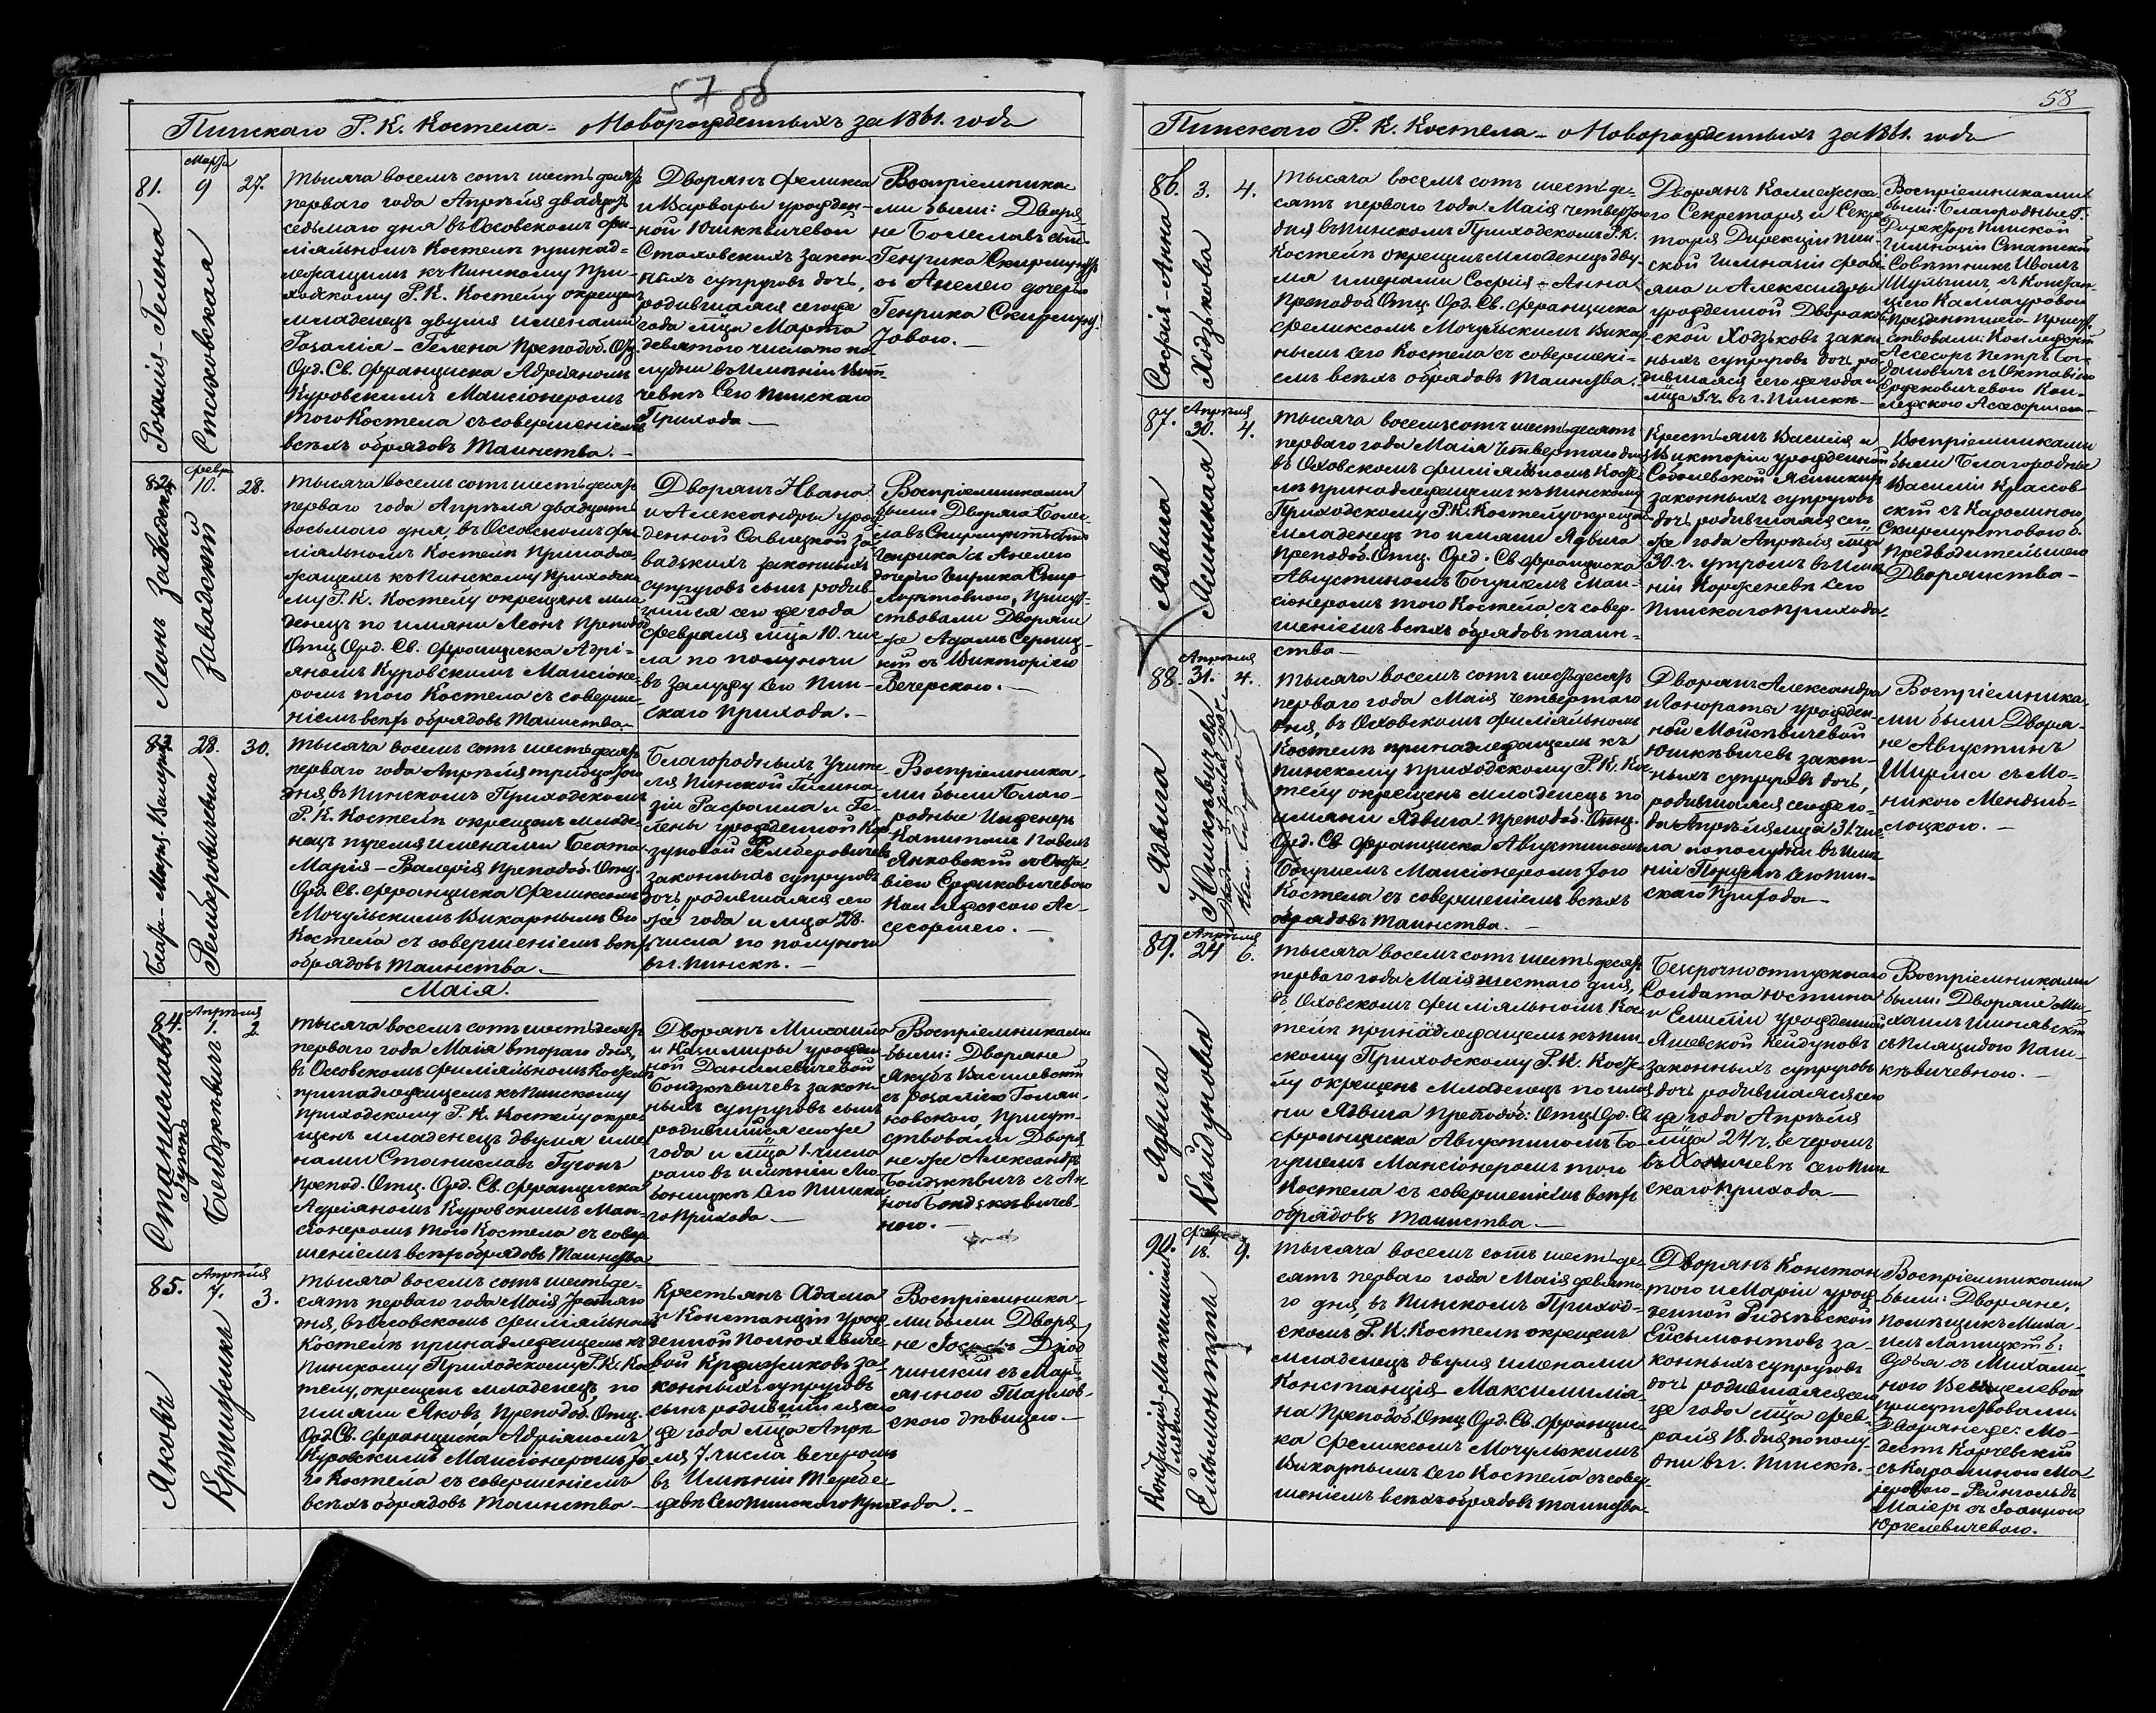 57
58
Пинскаго Р. К. Костела – о Новорожденныхъ за 1861. годъ
81.
Марта
9
27.
Розалія-Гелена
Стаховская
Тысяча восемь сотъ шестьдесятъ
перваго года Апрѣля двадцать
седьмаго дня въ Оссовскомъ фи-
ліяльномъ Костелѣ принад-
лежащимъ къ Пинскому При-
ходскому Р. К. Костелу окрещенъ
младенецъ двумя именами
Розалія – Гелена Преподоб. Отц.
Орд. Св. Франциска Адріяномъ
Куровскимъ Мансіонеромъ
того Костела съ совершеніемъ
всѣхъ обрядовъ Таинства. –
Дворянъ Феликса
и Варвары урожден-
ной Юшкѣвичевой
Стаховскихъ закон-
ныхъ супруговъ дочь,
родившаяся сего же
года мѣца Марта
девятаго числа по по-
лудни въ Имѣніи
Сего Пинскаго
Прихода –
Воспріемника-
ми были: Дворя-
не Болеславъ сынъ
Генрика Скирмунтъ
съ Анелею дочерью
Генрика Скирмун-
товою. –
82.
Февр.
10.
28.
Леонъ Завадскій
Завадскій
Тысяча восемь сотъ шестьдесятъ
перваго года Апрѣля двадцать
восьмаго дня, въ Оссовскомъ фи-
ліяльномъ Костелѣ принадле-
жащемъ къ Пинскому Приходско-
му Р. К. Костелу окрещенъ мла-
денецъ по имяни Леонъ Преподоб.
Отц. Орд. Св. Франциска Адрі-
яномъ Куровскимъ Мансіоне-
ромъ того Костела съ соверше-
ніемъ всѣхъ обрядовъ Таинства. –
Дворянъ Ивана
и Александры урож-
денной Савицкой За-
вадскихъ законныхъ
супруговъ сынъ родив-
шійся сего же года
Февраля мѣца 10. чис-
ла по полуночи
въ Залужу Сего Пин-
скаго прихода. –
Воспріемниками
были Дворяне Боле-
славъ Скирмунтъ сынъ
Генрика съ Анелею
дочерью Генрика Скир-
мунтовною, Присут-
ствовали Дворяне
же Адамъ
съ Викторіею
Вечерскою. –
83.
28.
30.
Беата-Марія-Валерія
Ремберовичевна
Тысяча восемь сотъ шестьдесятъ
перваго года Апрѣля тридцатого
дня въ Пинскомъ Приходскомъ
Р. К. Костелѣ окрещенъ младе-
нецъ тремя именами Беата
Марія – Валерія Преподоб. Отц.
Орд. Св. Франциска Феликсомъ
Мочульскимъ Викарнымъ Сего
Костела съ совершеніемъ всѣхъ
обрядовъ Таинства. –
Благородныхъ Учите-
ля Пинской Гимна-
зіи Рафаила и Ге-
лены урожденной
Ремберовичевъ
законныхъ супруговъ
дочь родившаяся сего
же года и мѣца 28.
числа по полуночи
въ г. Пинскѣ. –
Воспріемника-
ми были Благо-
родные Инженеръ
Капитанъ Павелъ
Янковскій съ Окта-
віею
Коллежскою Ас-
сесоршею. –
Маія.
84.
Апрѣля
1.
2.
Станиславъ
Гугонъ
Бондзкѣвичъ
Тысяча восемь сотъ шестьдесятъ
перваго года Маія втораго дня,
въ Оссовскомъ филіяльномъ Костелѣ
принадлежащемъ къ Пинскому
приходскому Р. К. Костелу окре-
щенъ младенецъ двумя име-
нами Станиславъ Гугонъ
Препод. Отц. Орд. Св. Франциска
Адріяномъ Куровскимъ Ман-
сіонеромъ того Костела съ совер-
шеніемъ всѣхъ обрядовъ Таинства
Дворянъ Михаила
и Казимиры урожден-
ной Данилевичевой
Бондзкѣвичевъ закон-
ныхъ супруговъ сынъ
родившійся сего же
года и мѣца 1. числа
рано въ имѣніи
Сего Пинска-
го прихода –
Воспріемниками
были: Дворяне
Якубъ Василевскій
съ Розаліею Голян-
ковскою, присут-
ствовали Дворя-
не же Александръ
Бондзкѣвичъ съ Ан-
ною Бондзкѣвичев-
ною. –
85.
Апрѣля
7.
3.
Яковъ
Крыжикъ
Тысяча восемь сотъ шестьде-
сятъ перваго года Маія третяго
дня, въ Оссовскомъ филіяльномъ
Костелѣ принадлежащемъ къ
Пинскому Приходскому Р. К. Кос-
телу, окрещенъ младенецъ по
имяни Яковъ Преподоб. Отц.
Орд. Св. Франциска Адріяномъ
Куровскимъ Мансіонеромъ То-
го Костела съ совершеніемъ
всѣхъ обрядовъ Таинства –
Крестьянъ Адама
и Констанціи урож-
денной Полюховиче-
вой Крыжиковъ за-
конныхъ супруговъ
сынъ родившійся сего
же года мѣца Апрѣ-
ля 7. числа вечеромъ
въ Имѣніи Теребе-
жевѣ Сего Пинскаго Прихода. –
Воспріемника-
ми были Дворя-
не
съ Марі-
янною
скою дѣвицею –
58
Пинскаго Р. К. Костела – о Новорожденныхъ за 1861. годъ
86.
3.
4.
Софія-Анна
Ходзькова
Тысяча восемь сотъ шесть де-
сятъ перваго года Маія четвертого
дня въ Пинскомъ Приходскомъ Р. К.
Костелѣ окрещенъ младенецъ дву-
мя именами Софія – Анна
Преподоб. Отц. Орд. Св. Франциска
Феликсомъ Мочульскимъ Викар-
нымъ сего Костела съ совершені-
емъ всѣхъ обрядовъ Таинства.
Дворянъ Коллежска-
го Секретаря и Секре-
таря Дирекціи Пин-
ской Гимназіи Фаби-
яна и Александры
урожденной Дворако-
вской Ходзьковъ закон-
ныхъ супруговъ дочь ро-
дившаяся сего же года и
мѣца 3. ч. въ г. Пинскѣ –
Воспріемниками
были: Благородные Г.
Директоръ Пинской
Гимназіи Статскій
Совѣтникъ Иванъ
съ Констан-
ціею
Присут-
ствовали: Коллежскій
Ассесоръ Петръ Бог-
дановичъ съ Октавіею
Кол-
лежскою Ассесоршею –
87.
Апрѣля
30.
4.
Ядвига
Ясинская
Тысяча восемь сотъ шестьдесятъ
перваго года Маія четвертаго дня
въ Оховскомъ филіяльномъ Косте-
лѣ принадлежащемъ къ Пинскому
Приходскому Р. К. Костелу окрещенъ
младенецъ по имяни Ядвига
Преподоб. Отц. Орд. Св. Франциска
Августиномъ Богушемъ Ман-
сіонеромъ того Костела съ совер-
шеніемъ всѣхъ обрядовъ таин-
ства –
Крестьянъ Василія и
Викторіи урожденной
Соболевской
законныхъ супруговъ
дочь родившаяся сего
же года Апрѣля мѣца
30. ч. утромъ въ Имѣ-
ніи Корженевѣ Сего
Пинскаго прихода.
Воспріемниками
были Благородные
Василій Крассов-
скій съ Каролиною
Скирмунтовою б.
Предводительшею
Дворянства –
88.
Апрѣля
31.
4.
Ядвига
Юшкѣвичева
Тысяча восемь сотъ шестьдесятъ
перваго года Маія четвертаго
дня, въ Оховскомъ филіяльномъ
Костелѣ принадлежащемъ къ
Пинскому приходскому Р. К. Кос-
телу окрещенъ младенецъ по
имяни Ядвига преподоб. Отц.
Орд. Св. Франциска Августиномъ
Богушемъ Мансіонеромъ того
Костела съ совершеніемъ всѣхъ
обрядовъ Таинства. –
Дворянъ Александра
и Гонораты урожден-
ной Мойсѣвичевой
Юшкѣвичевъ закон-
ныхъ супруговъ дочь,
родившаяся сего же го-
да Апрѣля мѣца 31. чис-
ла по полудни въ Имѣ-
ніи Сего Пин-
скаго прихода –
Воспріемника-
ми были Дворя-
не Августинъ
Ширма съ Мо-
никою
89.
Апрѣля
24
6.
Ядвига
Кейдунова
Тысяча восемь сотъ шестьдесятъ
перваго года Маія шестаго дня,
въ Оховскомъ филіяльномъ Кос-
телѣ принадлежащемъ къ Пин-
скому Приходскому Р. К. Косте-
лу окрещенъ младенецъ по имя-
ни Ядвига Преподоб: Отц. Орд. Св.
Франциска Августиномъ Бо-
гушемъ Мансіонеромъ того
Костела съ совершеніемъ всѣхъ
обрядовъ таинства –
Безсрочно отпускнаго
Солдата Юстина
и Емиліи урожденной
Яшевской Кейдуновъ
законныхъ супруговъ
дочь родившаяся сего
же года Апрѣля
мѣца 24. ч. вечеромъ
въ сего Пин-
скаго прихода –
Воспріемниками
были: Дворяне Ми-
хаилъ
съ Плацидою Паш-
кѣвичевною. –
90.
Февр.
18.
9.
Констанція-Максимилі-
яна
Ейсымонтъ
Тысяча восемь сотъ шесть де-
сятъ перваго года Маія девято-
го дня, въ Пинскомъ Приход-
скомъ Р. К. Костелѣ окрещенъ
младенецъ двумя именами
Констанція Максимилія-
на Преподоб. Отц. Орд. Св. Францис-
ка Феликсомъ Мочульскимъ
Викарнымъ Сего Костела съ совер-
шеніемъ всѣхъ обрядовъ таинства.
Дворянъ Констан-
того и Маріи урож-
денной
Ейсымонтовъ за-
конныхъ супруговъ
дочь родившаяся сего
же года мѣца Фев-
раля 18. дня по полу-
дни въ г. Пинскѣ. –
Воспріемниками
были: Дворяне,
помѣщикъ Миха-
илъ б:
Судья съ Михали-
ною
присутствовали
Дворяне же: Мо-
дестъ Корчевскій
съ Каролиною Ма-
еровою – Рейнгольдъ
Маіеръ съ Іоанною
Юргелевичевою.